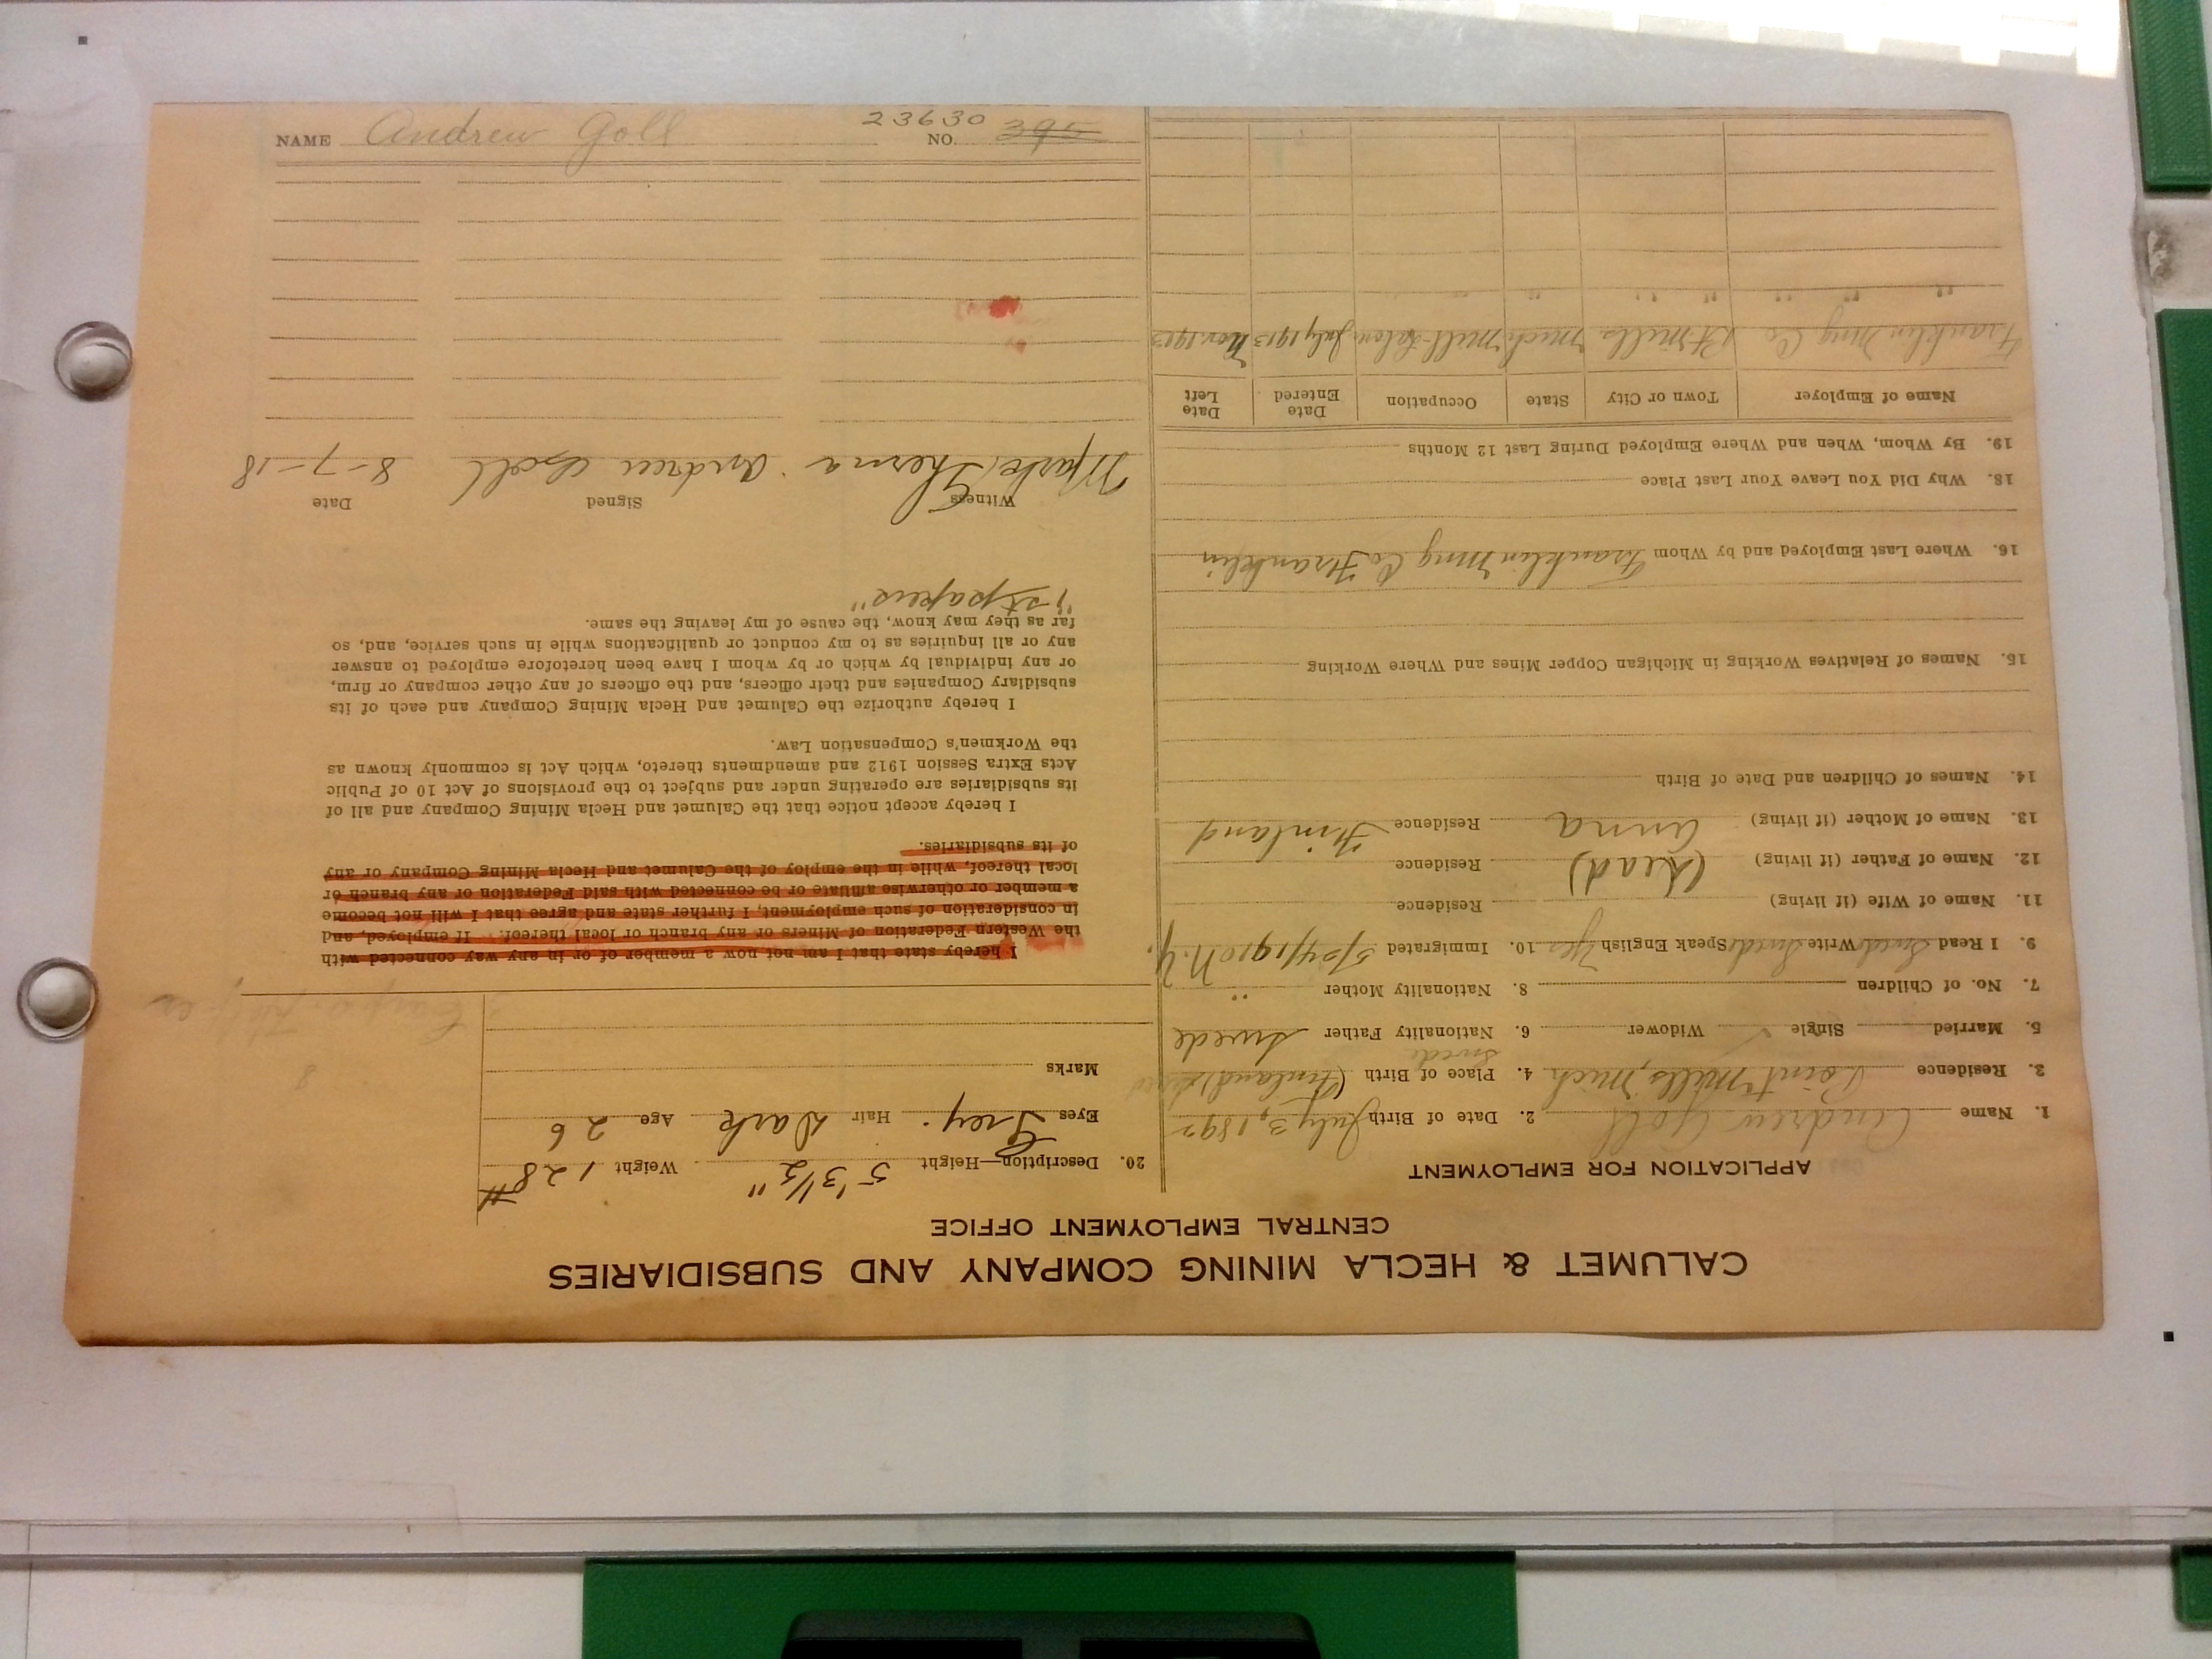 CALUMET & HECLA MINING COMPANY AND SUBSIDIARIES
CENTRAL EMPLOYMENT OFFICE
APPLICATION FOR EMPLOYMENT
1. Name Andrew Goll 2. Date of Birth July 3, 1892
3. Residence Point Mills, Mich 4. Place of Birth (Finland)
Swede
5. Married Single ✓ Widower 6. Nationality Father Swede
7. No. of Children 8. Nationality Mother "
9. I Read Swede Write Swede Speak English Yes 10. Immigrated 5/24/1910 N.Y.
11. Name of Wife (if living) Residence
12. Name of Father (if living) (Dead) Residence
13. Name of Mother (if living) Anna Residence Finland
14. Names of Children and Date of Birth
15. Names of Relatives Working in Michigan Copper Mines and Where Working
16. Where Last Employed and by Whom Franklin Mng Co. Franklin
18. Why Did You Leave Your Last Place
19. By Whom, When and Where Employed During Last 12 Months
Name of Employer Town or City State Occupation Date Entered Date Left
Franklin Mng Co Pt Mills Mich Mill July 1913 Nov. 1913
" " " " " " "
20. Description—Height 5' 3 1/2" Weight 128 #
Eyes Grey. Hair Dark Age 26
Marks
8
I hereby state that I am not now a member of or in any way connected with
the Western Federation of Miners or any branch or local thereof. If employed, and
in consideration of such employment, I further state and agree that I will not become
a member or otherwise affiliate or be connected with said Federation or any branch or
local thereof, while in the employ of the Calumet and Hecla Mining Company or any
of its subsidiaries.
I hereby accept notice that the Calumet and Hecla Mining Company and all of
its subsidiaries are operating under and subject to the provisions of Act 10 of Public
Acts Extra Session 1912 and amendments thereto, which Act is commonly known as
the Workmen's Compensation Law.
I hereby authorize the Calumet and Hecla Mining Company and each of its
subsidiary Companies and their officers, and the officers of any other company or firm,
or any individual by which or by whom I have been heretofore employed to answer
any or all inquiries as to my conduct or qualifications while in such service, and, so
far as they may know, the cause of my leaving the same.
"1st papers"
Witness Signed Date
Andrew Goll 8-7-18
NAME Andrew Goll NO. 395
23630